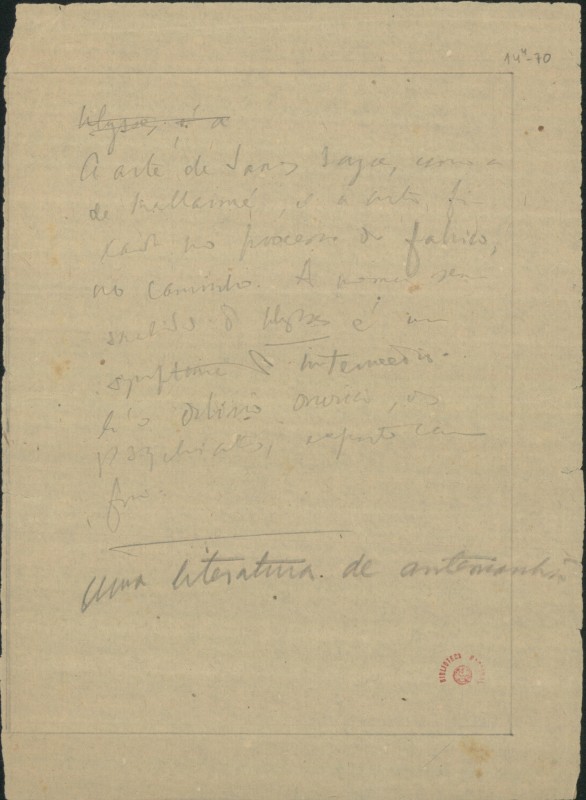 14⁴-70
Ulysses, é a
A arte de James Joyce, como a
de Mallarmé, é a arte fi-
xada no processo de fabrico,
no caminho. A mesma sen-
sualidade de Ulysses é um
symptoma de intermedio.
É o delirio onirico, dos
psychiatras, exposto como
fim.
Uma literatura de antemanhã
BIBLIOTECA